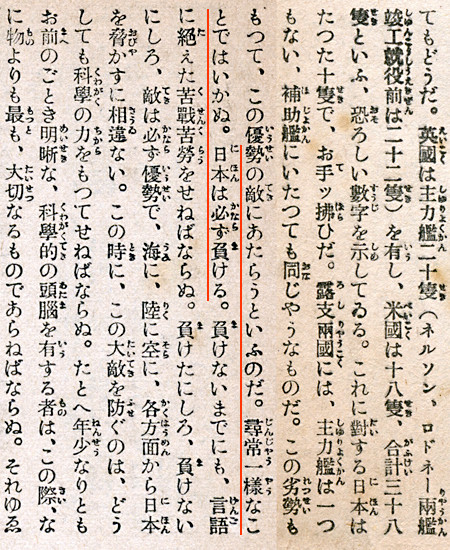 てもどうだ。英國は主力艦二十隻(ネルソン、ロドネー兩艦
竣工就役前は二十二隻)を有し、米國は十八隻、合計三十八
隻といふ、恐ろしい數字を示してゐる。これに對する日本は
たつた十隻で、お手ッ拂ひだ。露支兩國には、主力艦は一つ
もない、補助艦にいたつても同じやうなものだ。この劣勢も
もつて、この優勢の敵にあたらうといふのだ。尋常一樣なこ
とではいかぬ。日本は必ず負ける。負けないまでにも、言語
に絶えた苦戰苦勞をせねばならぬ。負けたにしろ、負けない
にしろ、敵は必ず優勢で、海に、陸に空に、各方面から日本
を脅かすに相違ない。この時に、この大敵を防ぐのは、どう
しても科學の力をもつてせねばならぬ。たとへ年少なりとも
お前のごとき明晰な、科學的の頭腦を有する者は、この際、な
に物よりも最も、大切なるものであらねばならぬ。それゆゑ